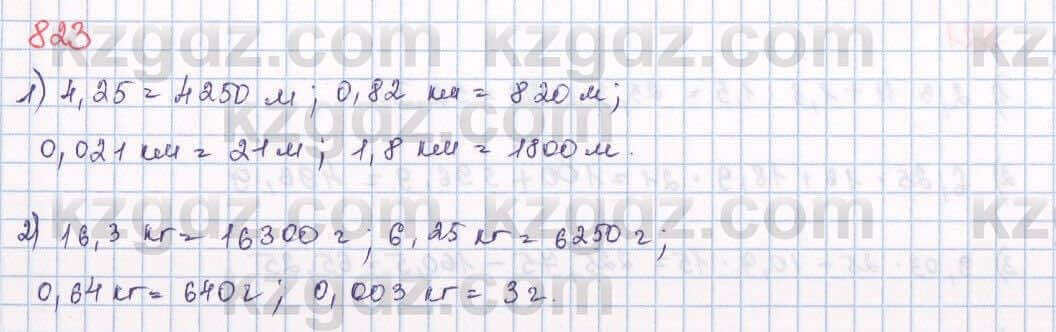 823
1) 4,25 = 4250 м; 0,82 км = 820 м;
0,021 км = 21 м; 1,8 км = 1800 м.
2) 16,3 кг = 16300 г; 6,25 кг = 6250 г;
0,64 кг = 640 г; 0,003 кг = 3 г.
kzgdz.com kzgdz.com
kzgdz.com
kzgdz.com kzgdz.com
kzgdz.com